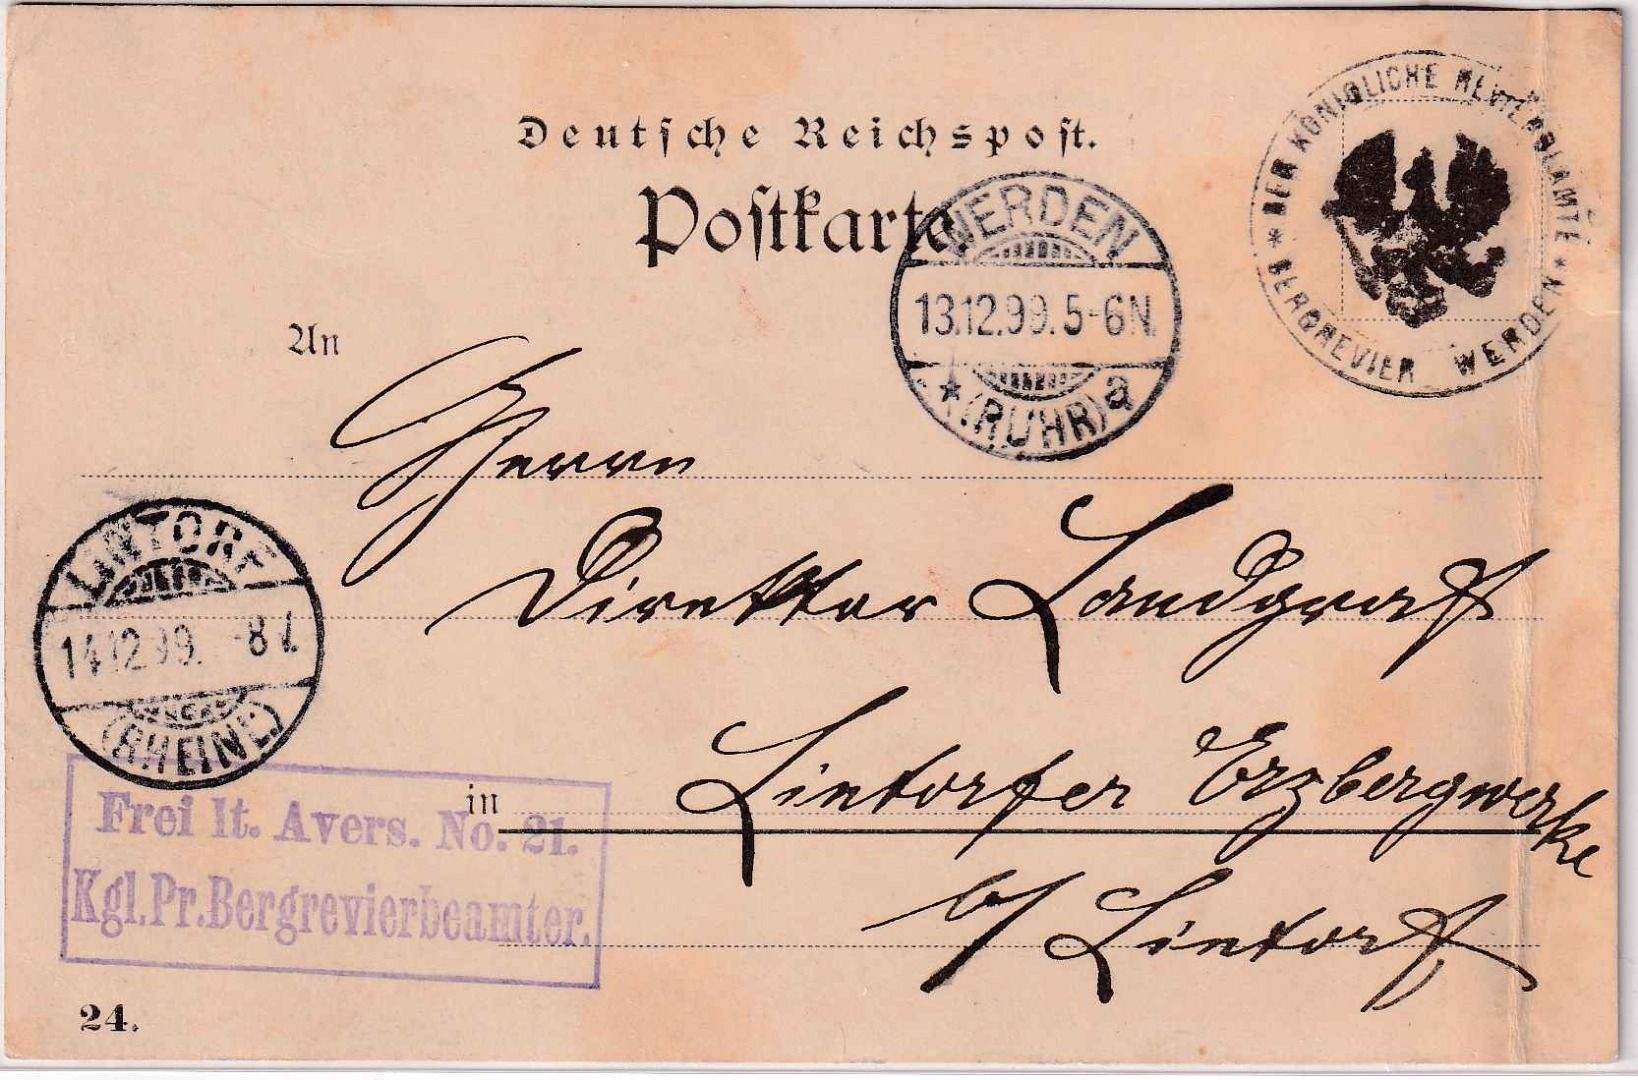 Deutsche Reichspost.
Postkarte
DER KÖNIGLICHE REVIERBEAMTE
* BERGREVIER WERDEN *
WERDEN
13.12.99. 5-6N.
* (RUHR) a
An
Herrn
Direktor Landgraf
LINTORF
14.12.99. -8 V.
(RHEINL)
in Lintorfer Erzbergwerke
b/ Lintorf
Frei lt. Avers. No. 21.
Kgl. Pr. Bergrevierbeamter.
24.